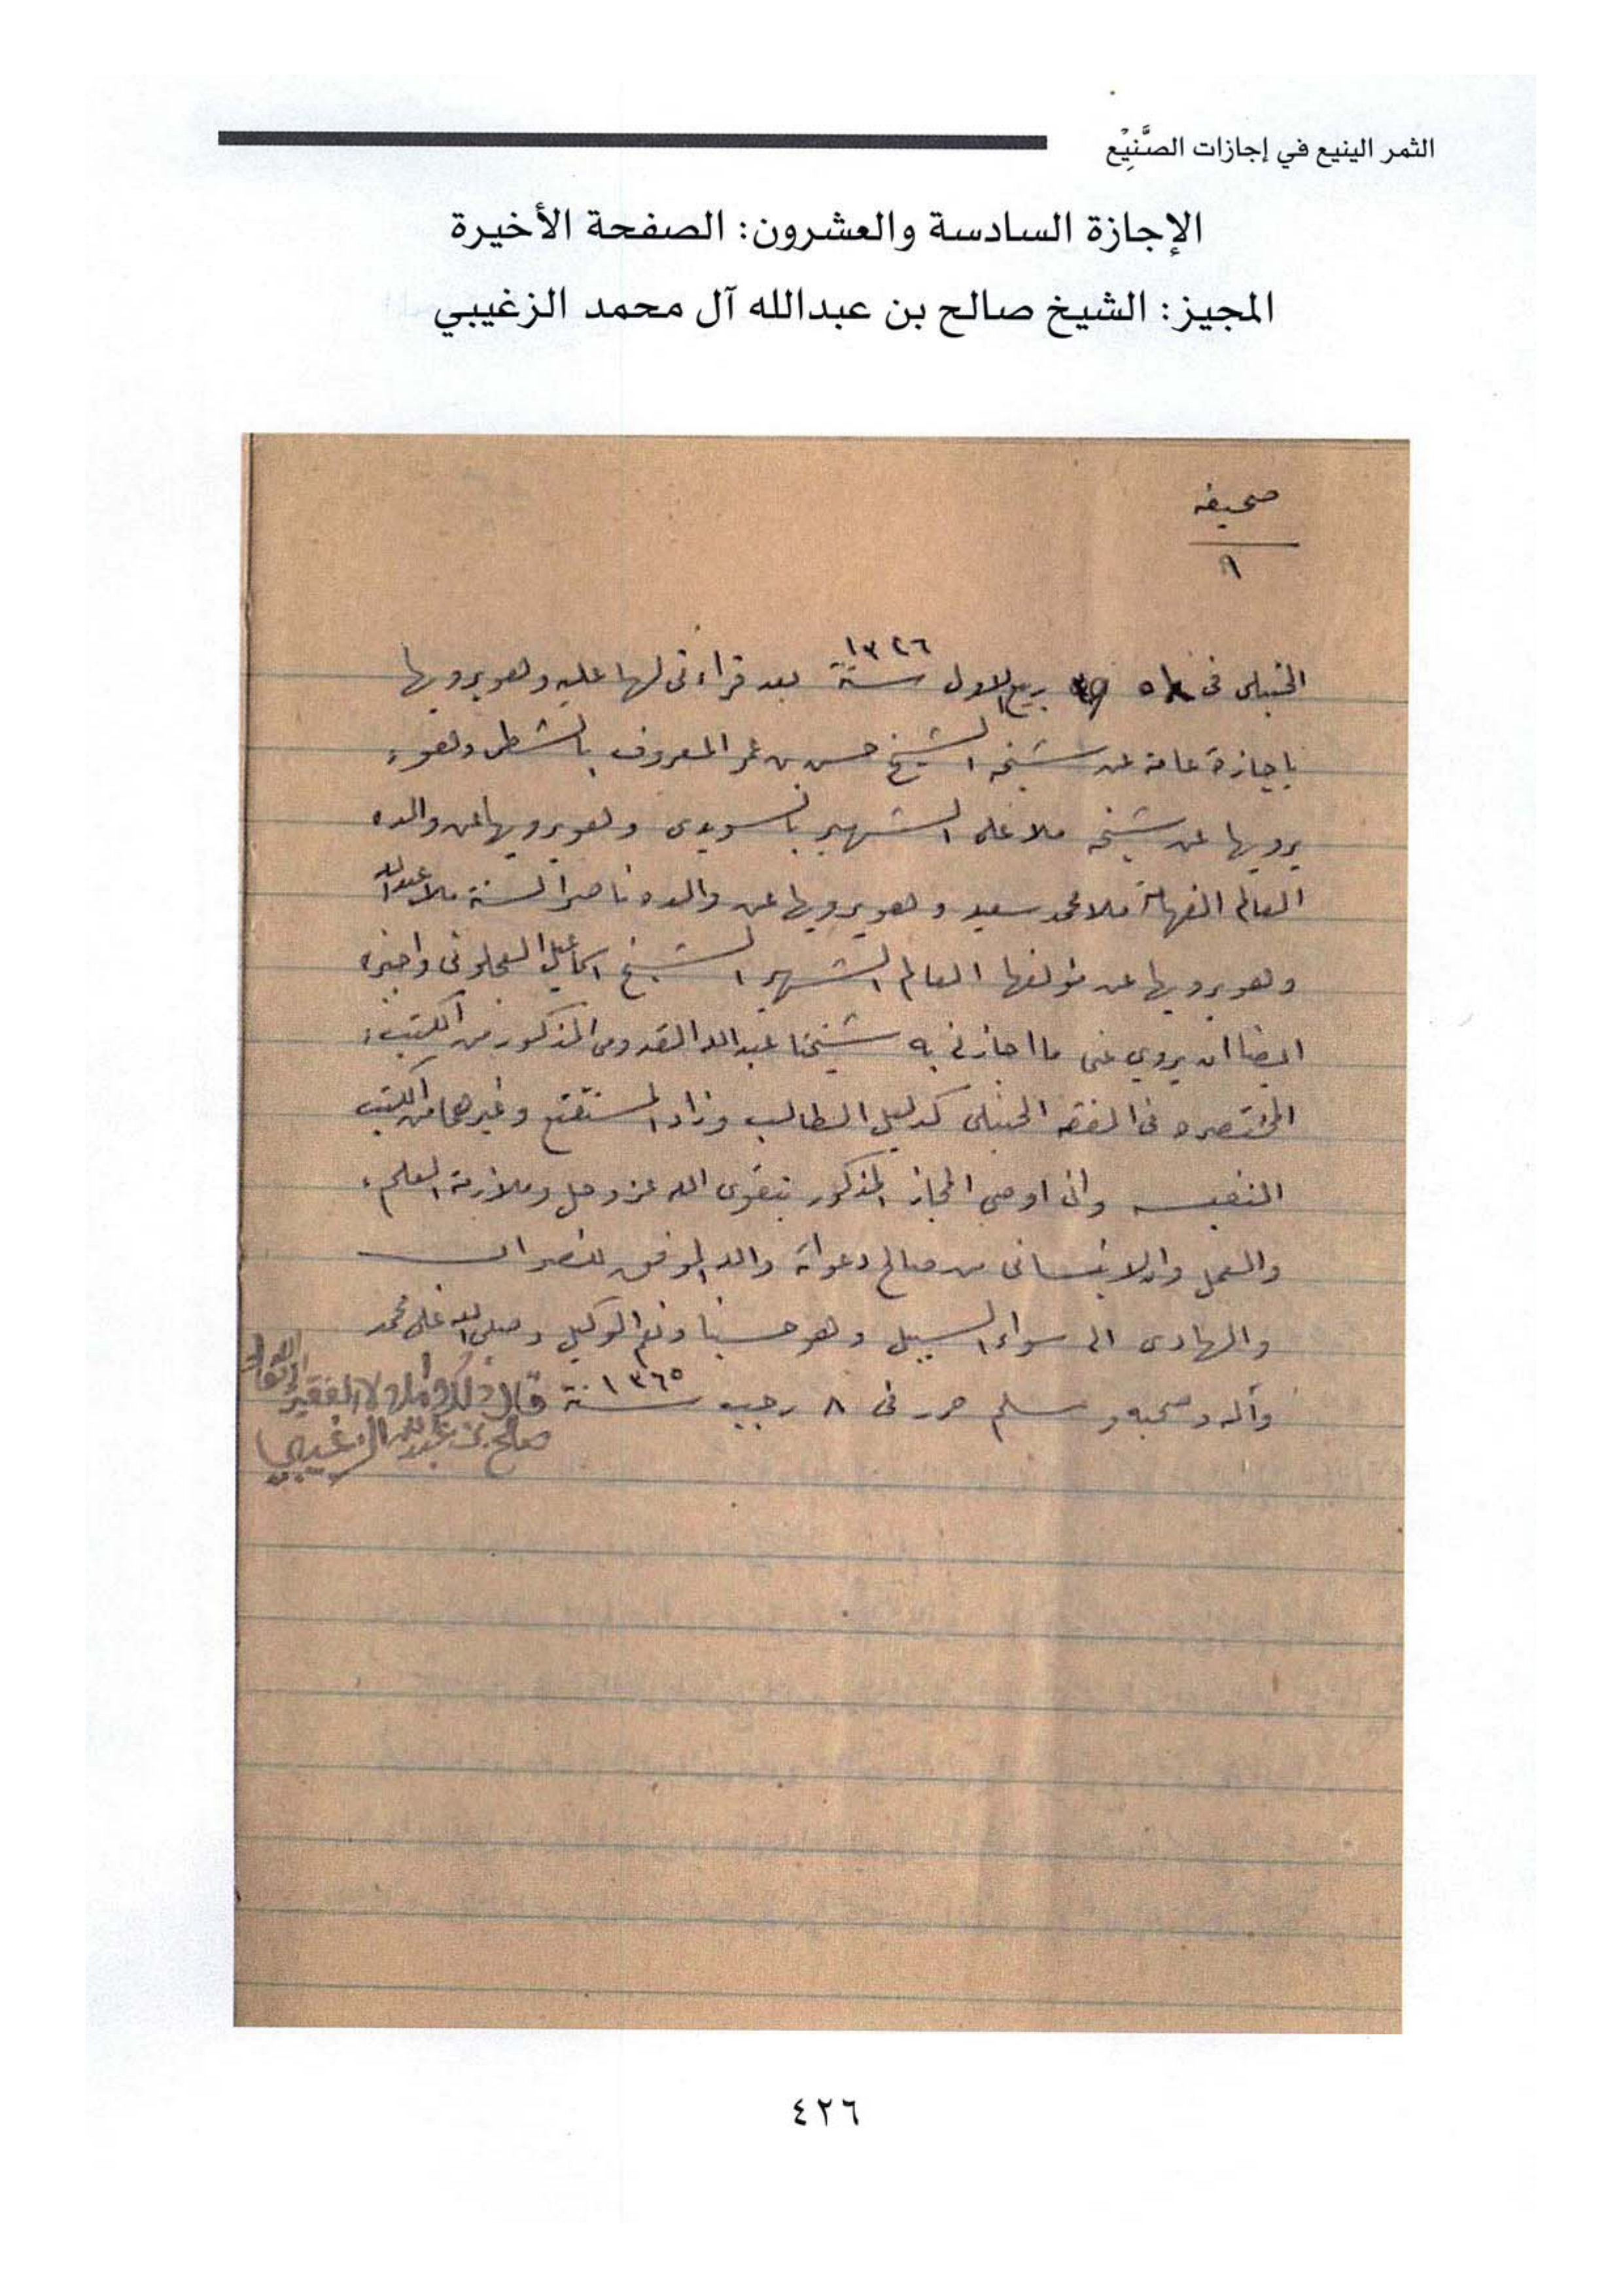 الثمر الينيع في إجازات الصَّنِيْع
الإجازة السادسة والعشرون: الصفحة الأخيرة
المجيز: الشيخ صالح بن عبدالله آل محمد الزغيبي
صحيفه
٩
الحنبلى فى ٥ ربيع الاول سنة ١٣٢٦ بعد قراءتى لها عليه وهو يرويها
باجازة عامة عن شيخه الشيخ حسن بن عمر المعروف بالشطى وهو
يرويها عن شيخه ملا على الشهير بالسويدى وهو يرويها عن والده
العالم الفهامة ملا محمد سعيد وهو يرويها عن والده ناصر السنة ملا عبدالله
وهو يرويها عن مؤلفها العالم الشهير الشيخ اسماعيل العجلونى واجيزه
ايضا ان يروي عنى ما اجازنى به شيخنا عبدالله القدومى المذكور من الكتب
المختصره فى الفقه الحنبلى كدليل الطالب وزاد المستقنع وغيرهما من الكتب
النفيسه وانى اوصى المجاز المذكور بتقوى الله عز وجل وملازمة العلم
والعمل وان لا ينسانى من صالح دعواته والله الموفق للصواب
والهادى الى سواء السبيل وهو حسبنا ونعم الوكيل وصلى الله على محمد
وآله وصحبه وسلم حرر فى ٨ رجب سنة ١٣٦٥ قال ذلك وأملاه الفقير إلى الله تعالى
صالح بن عبدالله الزغيبي
٤٢٦